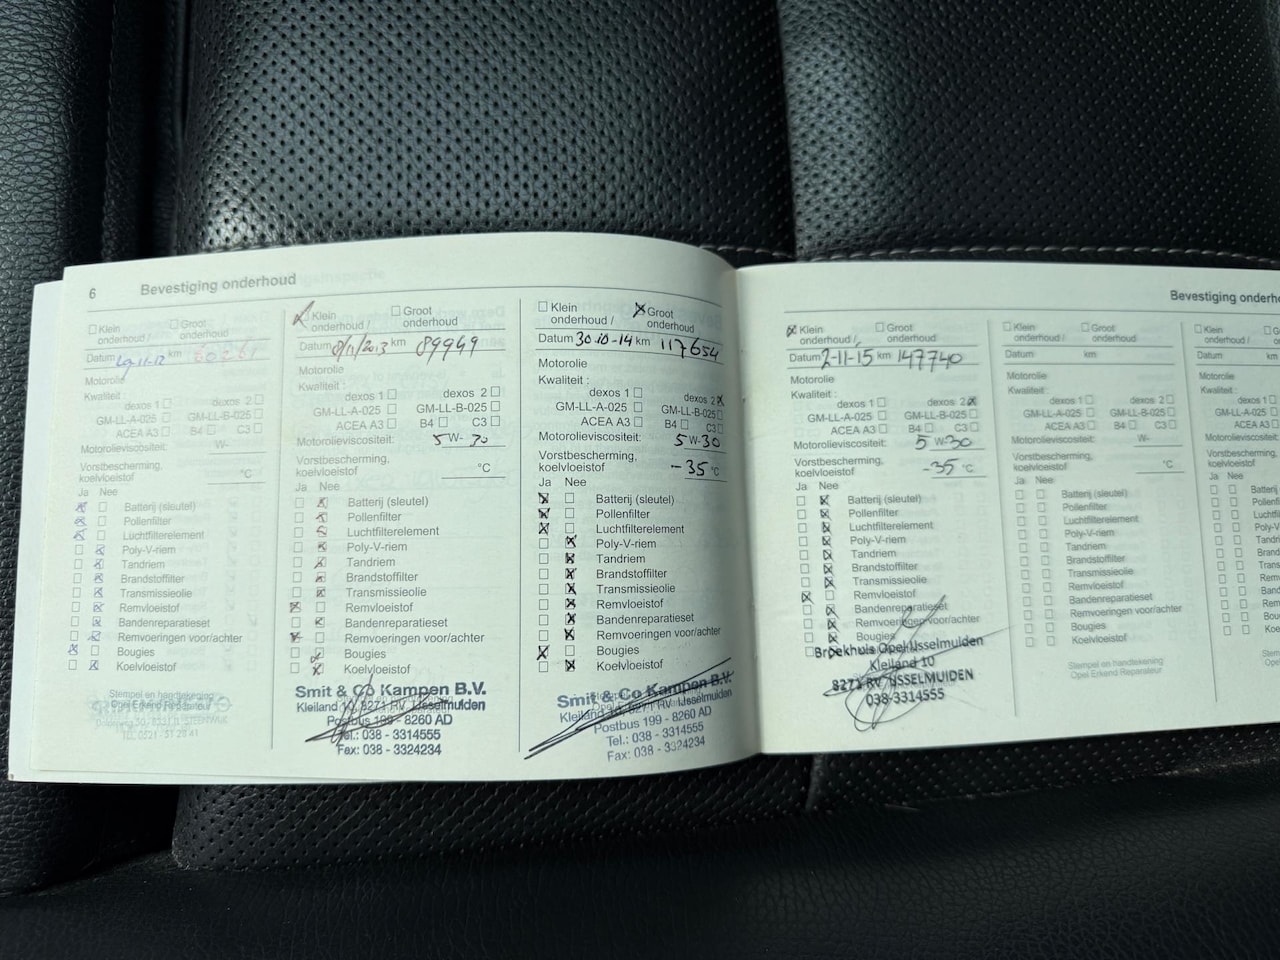 6 Bevestiging onderhoud
Klein onderhoud /
Groot onderhoud
Datum km
Motorolie
Kwaliteit :
dexos 1 dexos 2
GM-LL-A-025 GM-LL-B-025
ACEA A3 B4 C3
Motorolieviscositeit: W-
Vorstbescherming,
koelvloeistof °C
Ja Nee
Batterij (sleutel)
Pollenfilter
Luchtfilterelement
Poly-V-riem
Tandriem
Brandstoffilter
Transmissieolie
Remvloeistof
Bandenreparatieset
Remvoeringen voor/achter
Bougies
Koelvloeistof
Stempel en handtekening
Opel Erkend Reparateur
Klein onderhoud /
Groot onderhoud
Datum 8/11/2013 km 89949
Motorolie
Kwaliteit :
dexos 1 dexos 2
GM-LL-A-025 GM-LL-B-025
ACEA A3 B4 C3
Motorolieviscositeit: 5 W- 30
Vorstbescherming,
koelvloeistof °C
Ja Nee
Batterij (sleutel)
Pollenfilter
Luchtfilterelement
Poly-V-riem
Tandriem
Brandstoffilter
Transmissieolie
Remvloeistof
Bandenreparatieset
Remvoeringen voor/achter
Bougies
Koelvloeistof
Smit & Co Kampen B.V.
Kleiland 10, 8271 RV IJsselmuiden
Postbus 199 - 8260 AD
Tel.: 038 - 3314555
Fax: 038 - 3324234
Klein onderhoud /
Groot onderhoud
Datum 30-10-14 km 117654
Motorolie
Kwaliteit :
dexos 1 dexos 2
GM-LL-A-025 GM-LL-B-025
ACEA A3 B4 C3
Motorolieviscositeit: 5 W-30
Vorstbescherming,
koelvloeistof -35 °C
Ja Nee
Batterij (sleutel)
Pollenfilter
Luchtfilterelement
Poly-V-riem
Tandriem
Brandstoffilter
Transmissieolie
Remvloeistof
Bandenreparatieset
Remvoeringen voor/achter
Bougies
Koelvloeistof
Smit & Co Kampen B.V.
Kleiland 10, 8271 RV IJsselmuiden
Postbus 199 - 8260 AD
Tel.: 038 - 3314555
Fax: 038 - 3324234
Bevestiging onderho
Klein onderhoud /
Groot onderhoud
Datum 2-11-15 km 147740
Motorolie
Kwaliteit :
dexos 1 dexos 2
GM-LL-A-025 GM-LL-B-025
ACEA A3 B4 C3
Motorolieviscositeit: 5 W-30
Vorstbescherming,
koelvloeistof -35 °C
Ja Nee
Batterij (sleutel)
Pollenfilter
Luchtfilterelement
Poly-V-riem
Tandriem
Brandstoffilter
Transmissieolie
Remvloeistof
Bandenreparatieset
Remvoeringen voor/achter
Bougies
Broekhuis Opel IJsselmuiden
Kleiland 10
8271 RV IJSSELMUIDEN
038-3314555
Klein onderhoud /
Groot onderhoud
Datum km
Motorolie
Kwaliteit :
dexos 1 dexos 2
GM-LL-A-025 GM-LL-B-025
ACEA A3 B4 C3
Motorolieviscositeit: W-
Vorstbescherming,
koelvloeistof °C
Ja Nee
Batterij (sleutel)
Pollenfilter
Luchtfilterelement
Poly-V-riem
Tandriem
Brandstoffilter
Transmissieolie
Remvloeistof
Bandenreparatieset
Remvoeringen voor/achter
Bougies
Koelvloeistof
Stempel en handtekening
Opel Erkend Reparateur
Klein onderhoud /
Datum
Motorolie
Kwaliteit :
dexos 1
GM-LL-A-025
ACEA A3
Motorolieviscositeit:
Vorstbescherming,
koelvloeistof
Ja Nee